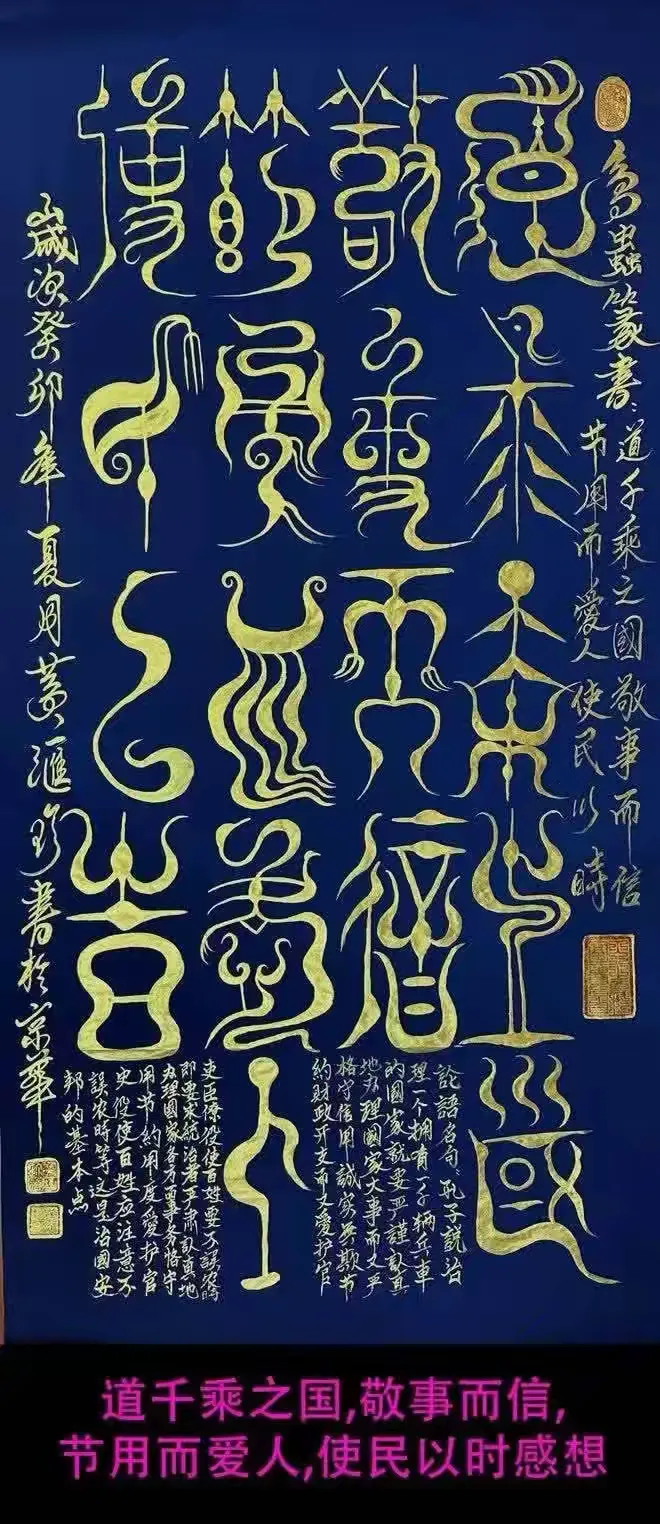 鳥蟲篆書:道千乘之國敬事而信
节用而愛人使民以時
道千乘之國
敬事而信
节用而愛人
使民以時
論語名句:孔子説治
理一个拥有一千辆兵車
的国家就要严謹认真
地办理國家大事而又严
格守信用誠实无欺节
约财政开支而又爱护官
吏臣僚役使百姓要不誤农時
即要求統治者严肃认真地
办理國家各方面事务恪守
用节约用度爱护官
史役使百姓应注意不
誤农時等这是治國安
邦的基本点
歲次癸卯年夏月黄滙珍書於京華
道千乘之国,敬事而信,
节用而爱人,使民以时感想